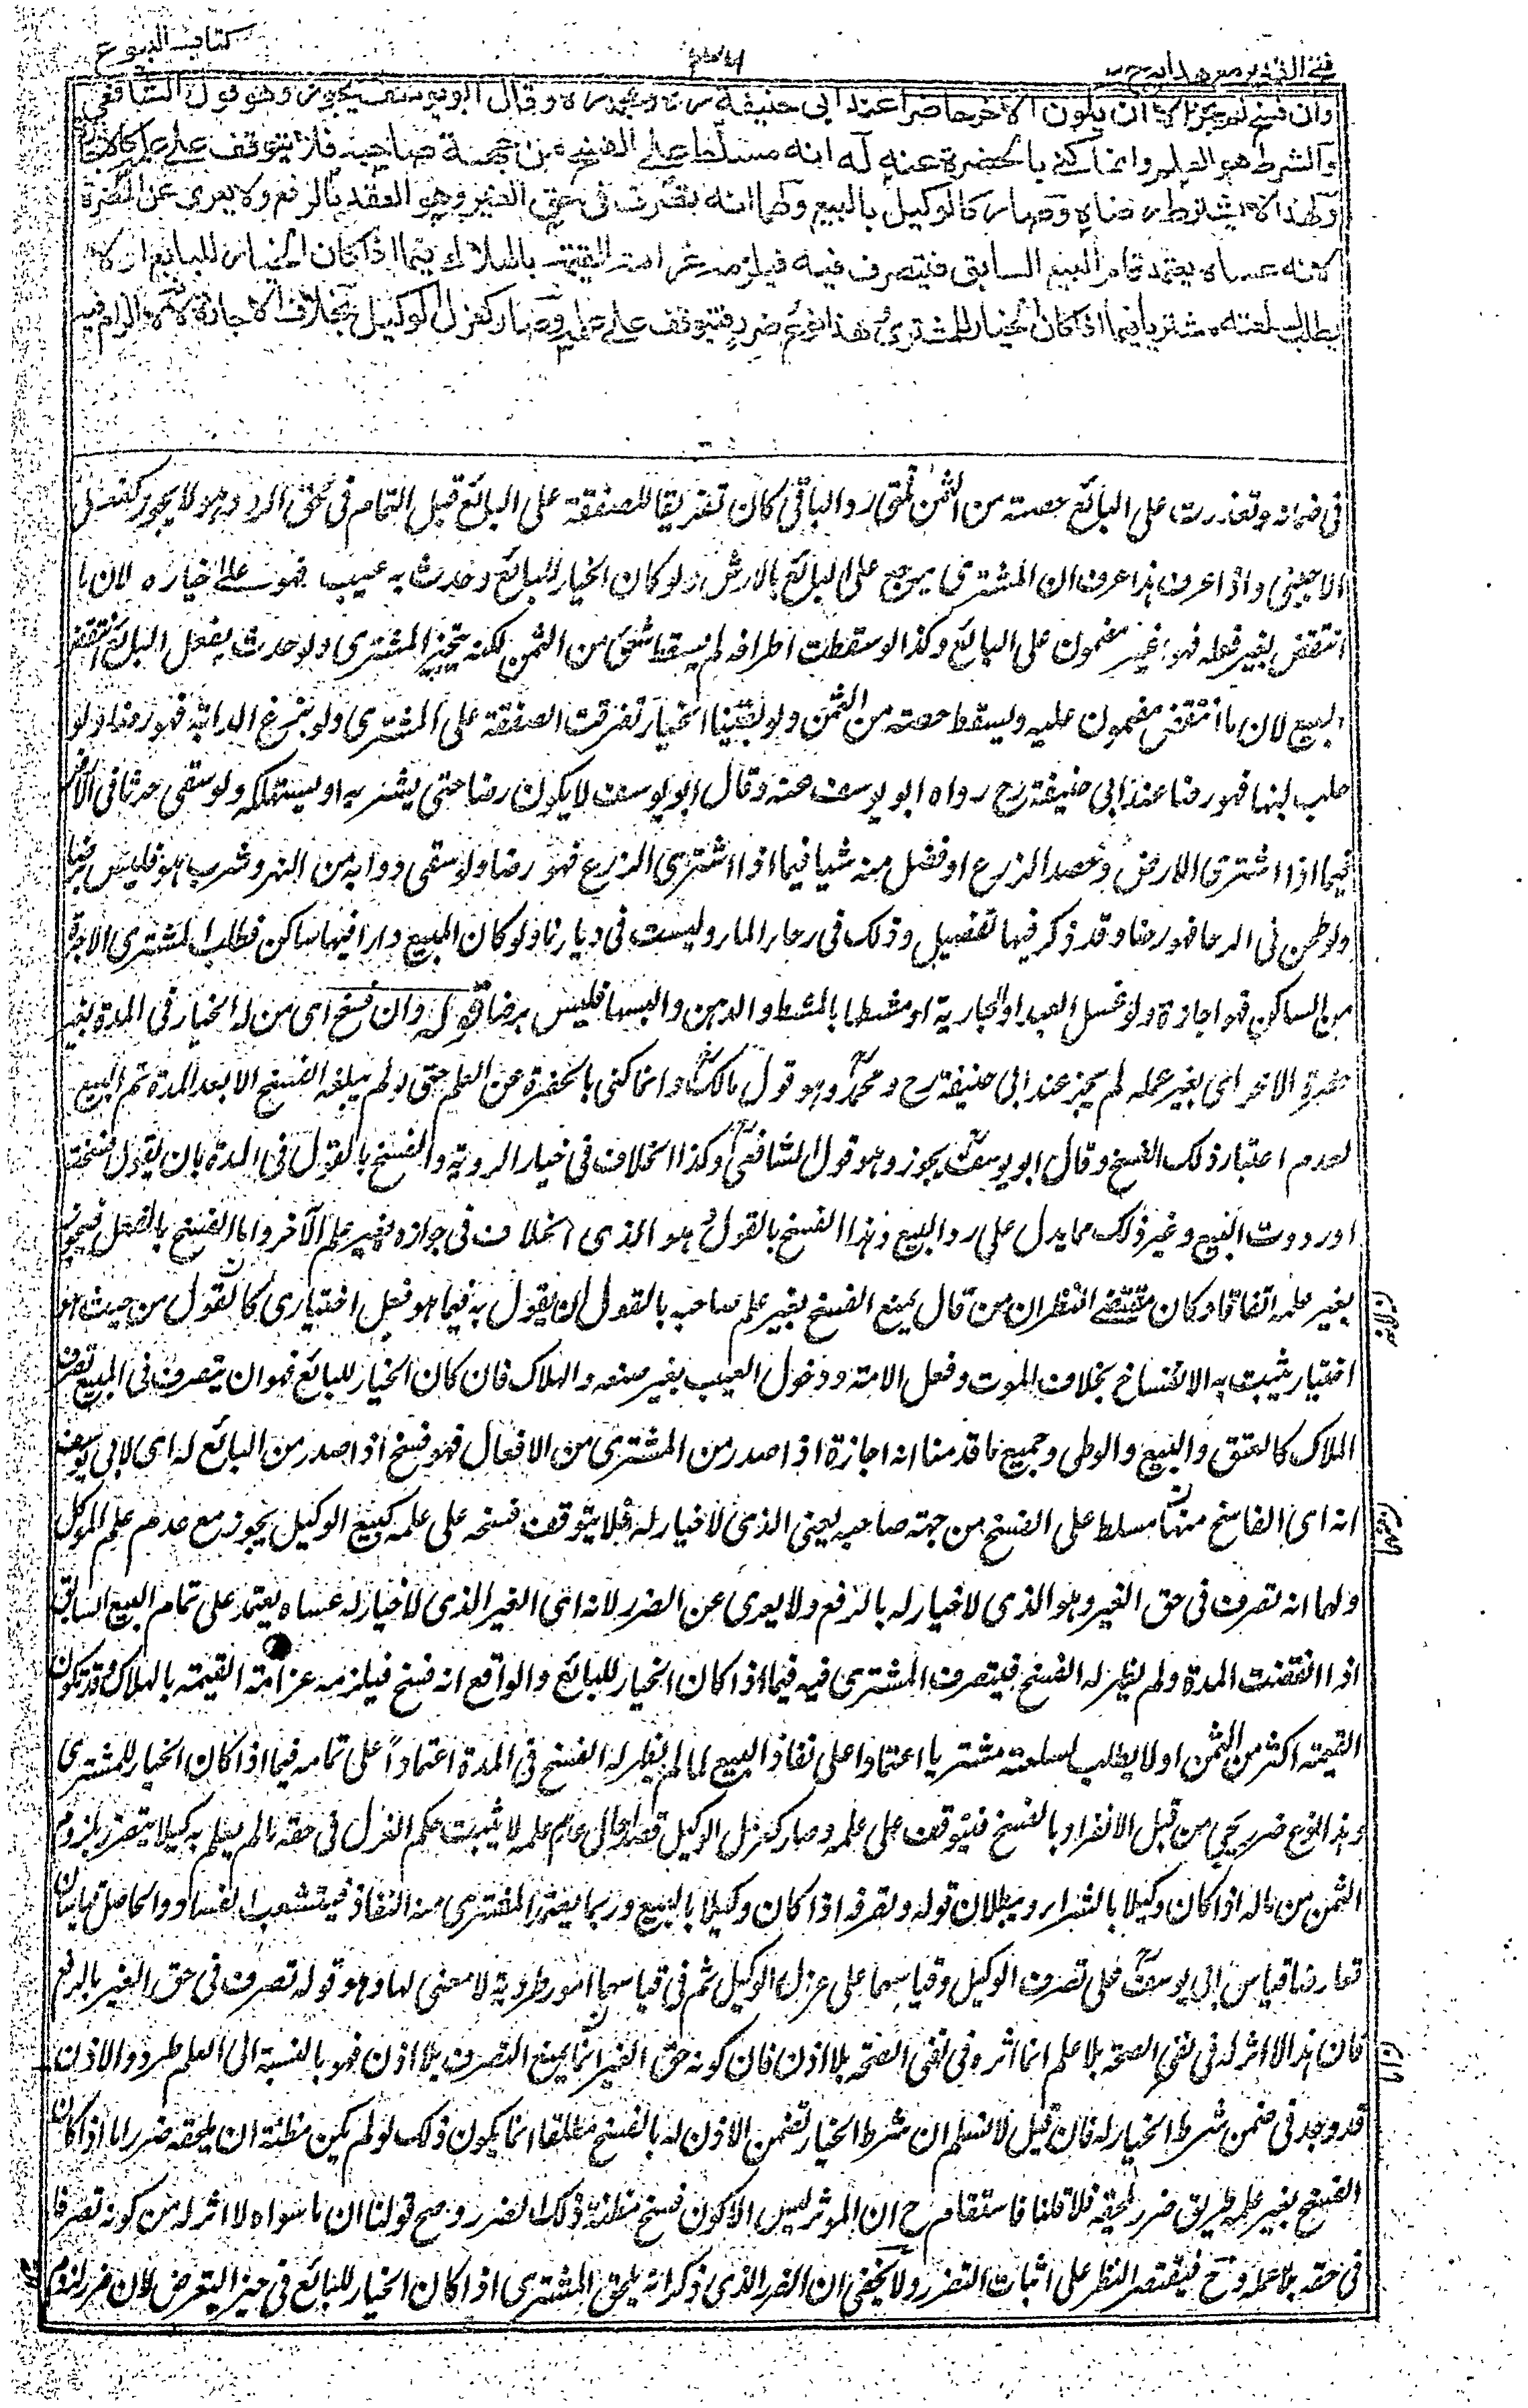 كتاب البيوع
فتح القدير مع هدايه ج ٣
وان فسخ لم يجز الا ان يكون الاخر حاضرا عند ابي حنيفة رح ومحمد رح وقال ابو يوسف يجوز وهو قول الشافعي
والشرط هو العلم وانما كنى بالحضرة عنه له انه مسلط على الفسخ من جهة صاحبه فلا يتوقف على علمه كالاجازة
ولهذا لا يشترط رضاه وصار كالوكيل بالبيع ولهما انه تصرف فى حق الغير وهو العقد بالرفع ولا يعرى عن المضرة
لانه عساه يعتمد تمام البيع السابق فيتصرف فيه فيلزمه غرامة القيمة بالهلاك فيما اذا كان الخيار للبايع او لا
يطلب لسلعته مشتريا فيما اذا كان الخيار للمشترى هذا نوع ضرر فيتوقف على علمه وصار كعزل الوكيل بخلاف الاجازة لانه لا الزام فيه
فى ضمانه وتعذرت على البائع حصته من الثمن فلو رد الباقى كان تفريقا للصفقة على البائع قبل التمام فى حق الرد وهو لا يجوز كفعل
الاجنبى واذا عرف هذا عرف ان المشترى يرجع على البائع بالارش ولو كان الخيار للبائع وحدث به عيب فهو على خياره لان ما
انتقض بغير فعله فهو غير مضمون على البائع وكذا لو سقطت اطرافه لم يسقط شئ من الثمن لكنه يتخير المشترى ولو حدث بفعل البائع انتقض
البيع لان ما انتقض مضمون عليه ويسقط حصته من الثمن ولو بقينا الخيار تفرقت الصفقة على المشترى ولو بزغ الدابة فهو رضا ولو
حلب لبنها فهو رضا عند ابى حنيفة رح رواه ابو يوسف عنه وقال ابو يوسف لا يكون رضا حتى يشربه او يستهلكه ولو سقى حرثا فى الارض
فيما اذا اشترى الارض وحصد الزرع او فصل منه شيا فيما اذا اشترى الزرع فهو رضا ولو سقى دوابه من النهر وشرب هو فليس برضا
ولو طحن فى الرحا فهو رضا وقد ذكر فيها تفصيل وذلك فى رحا الماء وليست فى ديارنا ولو كان المبيع دارا فيها ساكن فطلب المشترى الاجرة
من الساكن فهو اجازة ولو غسل العبد او الجارية او مشطها بالمشط والدهن والبسها فليس برضا قوله وان فسخ اى من له الخيار فى المدة بغير
حضرة الاخر اى بغير علمه لم يجز عند ابى حنيفة رح ومحمدؒ وهو قول مالكؒ وانما كنى بالحضرة عن العلم حتى لو لم يبلغه الفسخ الا بعد المدة تم البيع
لعدم اعتبار ذلك الفسخ وقال ابو يوسفؒ يجوز وهو قول الشافعىؒ وكذا الخلاف فى خيار الروية والفسخ بالقول فى المدة بان يقول فسخت
او رددت البيع وغير ذلك مما يدل على رد البيع وهذا الفسخ بالقول هو الذى الخلاف فى جوازه بغير علم الآخر واما الفسخ بالفعل فيجوز
بغير علمه اتفاقا وكان مقتضى النظر ان من قال يمنع الفسخ بغير علم صاحبه بالقول ان يقول به فيما هو فعل اختيارى كالقول من حيث هو
اختيار يثبت به الانفساخ بخلاف الموت وفعل الامة ودخول العيب بغير صنعه والهلاك فان كان الخيار للبائع فهو ان يتصرف فى المبيع تصرف
الملاك كالعتق والبيع والوطى وجميع ما قدمنا انه اجازة اذا صدر من المشترى من الافعال فهو فسخ اذا صدر من البائع له اى لابى يوسف
انه اى الفاسخ منهما مسلط على الفسخ من جهة صاحبه يعنى الذى لا خيار له فلا يتوقف فسخه على علمه كبيع الوكيل يجوز مع عدم علم الموكل
ولهما انه تصرف فى حق الغير وهو الذى لا خيار له بالرفع ولا يعرى عن الضرر لانه اى الغير الذى لا خيار له عساه يعتمد على تمام البيع السابق
اذا انقضت المدة ولم يظهر له الفسخ فيتصرف المشترى فيه فيما اذا كان الخيار للبائع والواقع انه فسخ فيلزمه غرامة القيمة بالهلاك وقد تكون
القيمة اكثر من الثمن او لا يطلب لسلعته مشتريا اعتمادا على نفاذ البيع لما لم يظهر له الفسخ فى المدة اعتماداً على تمامه فيما اذا كان الخيار للمشترى
وهذا نوع ضرر يجئ من قبل الانفراد بالفسخ فيتوقف على علمه وصار كعزل الوكيل قصدا حال عدم علمه لا يثبت حكم العزل فى حقه ما لم يعلم به كيلا يتضرر بلزوم
الثمن من ماله اذا كان وكيلا بالشراء وببطلان قوله وتصرفه اذا كان وكيلا بالبيع وربما يضر المشترى منه النفاذ فيتشعب الفساد والحاصل قياسان
تعارضا قياس ابى يوسفؒ على تصرف الوكيل وقياسهما على عزل الوكيل ثم فى قياسهما امور طردية لا معنى لها وهو قوله تصرف فى حق الغير بالرفع
فان هذا لا اثر له فى نفى الصحة بلا علم انما اثره فى نفى الصحة بلا اذن فان كونه حق الغير انما يمنع التصرف بلا اذن فهو بالنسبة الى العلم طرد والاذن
قد وجد فى ضمن شرط الخيار له فان قيل لا نسلم ان شرط الخيار تضمن الاذن له بالفسخ مطلقا انما يكون ذلك لو لم يكن مظنة ان يلحقه ضرر اما اذا كان
الفسخ بغير علمه طريق ضرر يلحقه فلا قلنا فاستقام ح ان الموثر ليس الا كون فسخ مظنة ذلك الضرر وصح قولنا ان ما سواه لا اثر له من كونه تصرفا
فى حقه بلا علمه وح فيقتصر النظر على اثبات التضرر ولا يخفى ان الضرر الذى ذكر انه يلحق المشترى اذا كان الخيار للبائع فى حيز التعرض لان ضرر لزوم